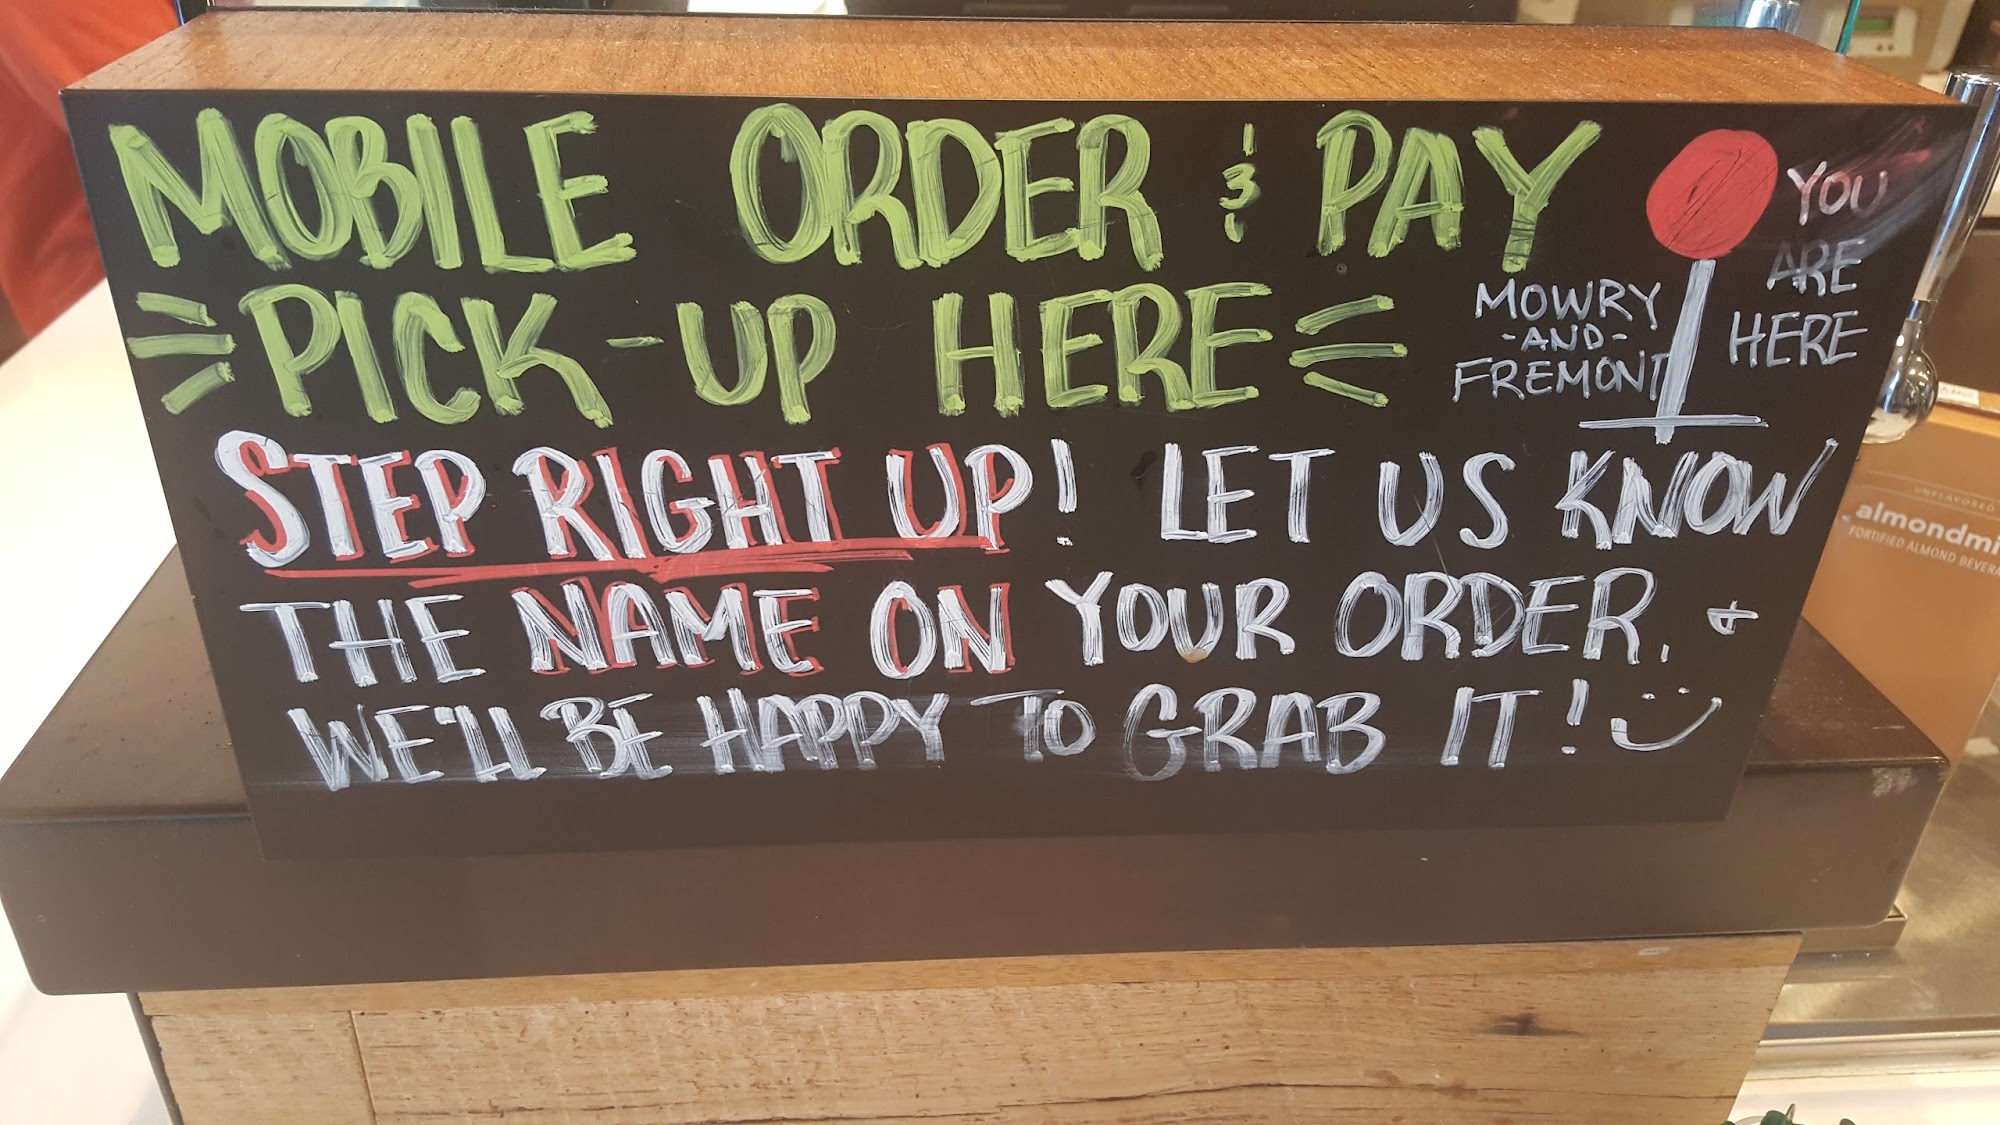 MOBILE ORDER & PAY
PICK-UP HERE
MOWRY
-AND-
FREMONT
YOU
ARE
HERE
STEP RIGHT UP! LET US KNOW
THE NAME ON YOUR ORDER, &
WE'LL BE HAPPY TO GRAB IT! :)
UNFLAVORED
almondmi
FORTIFIED ALMOND BEVERA